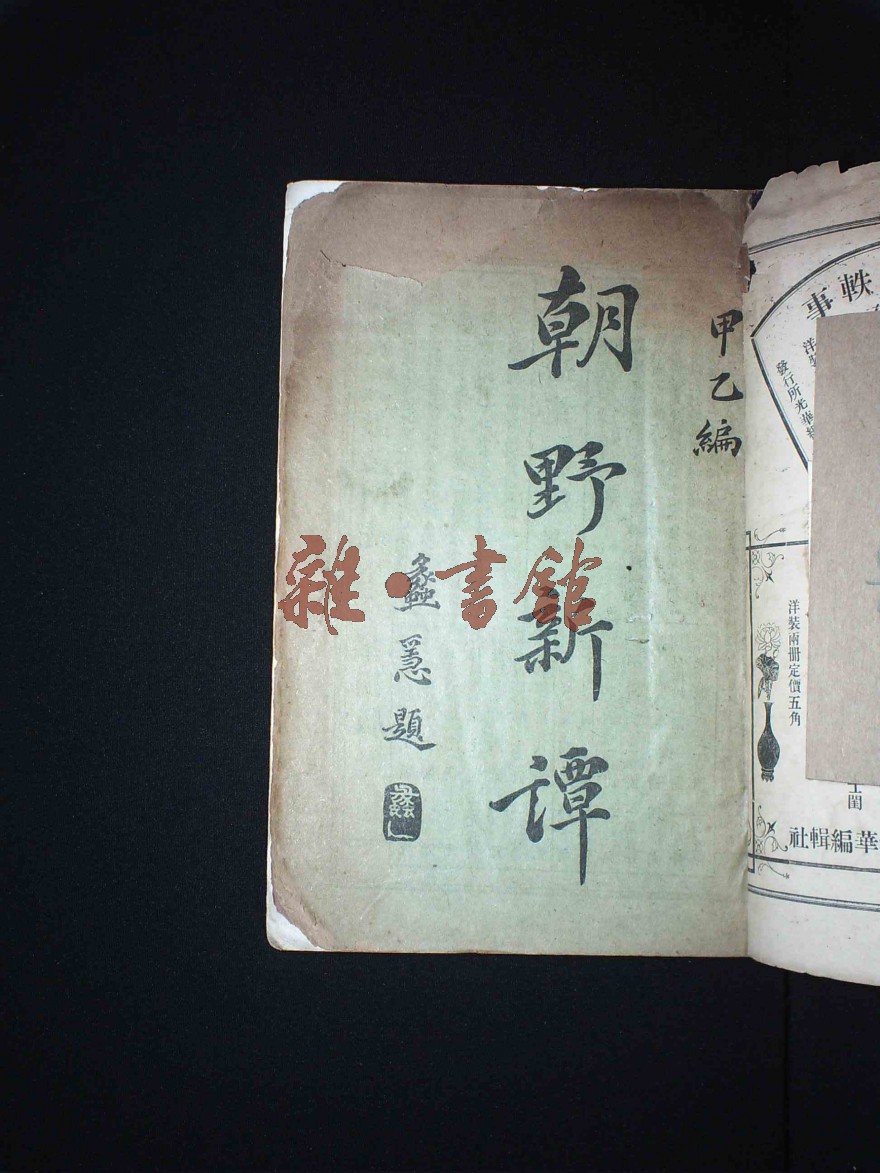 甲乙編
朝野新譚
蠡㥯題
雜·書館
軼事
發行所光華編
洋裝兩冊定價五角
華編輯社